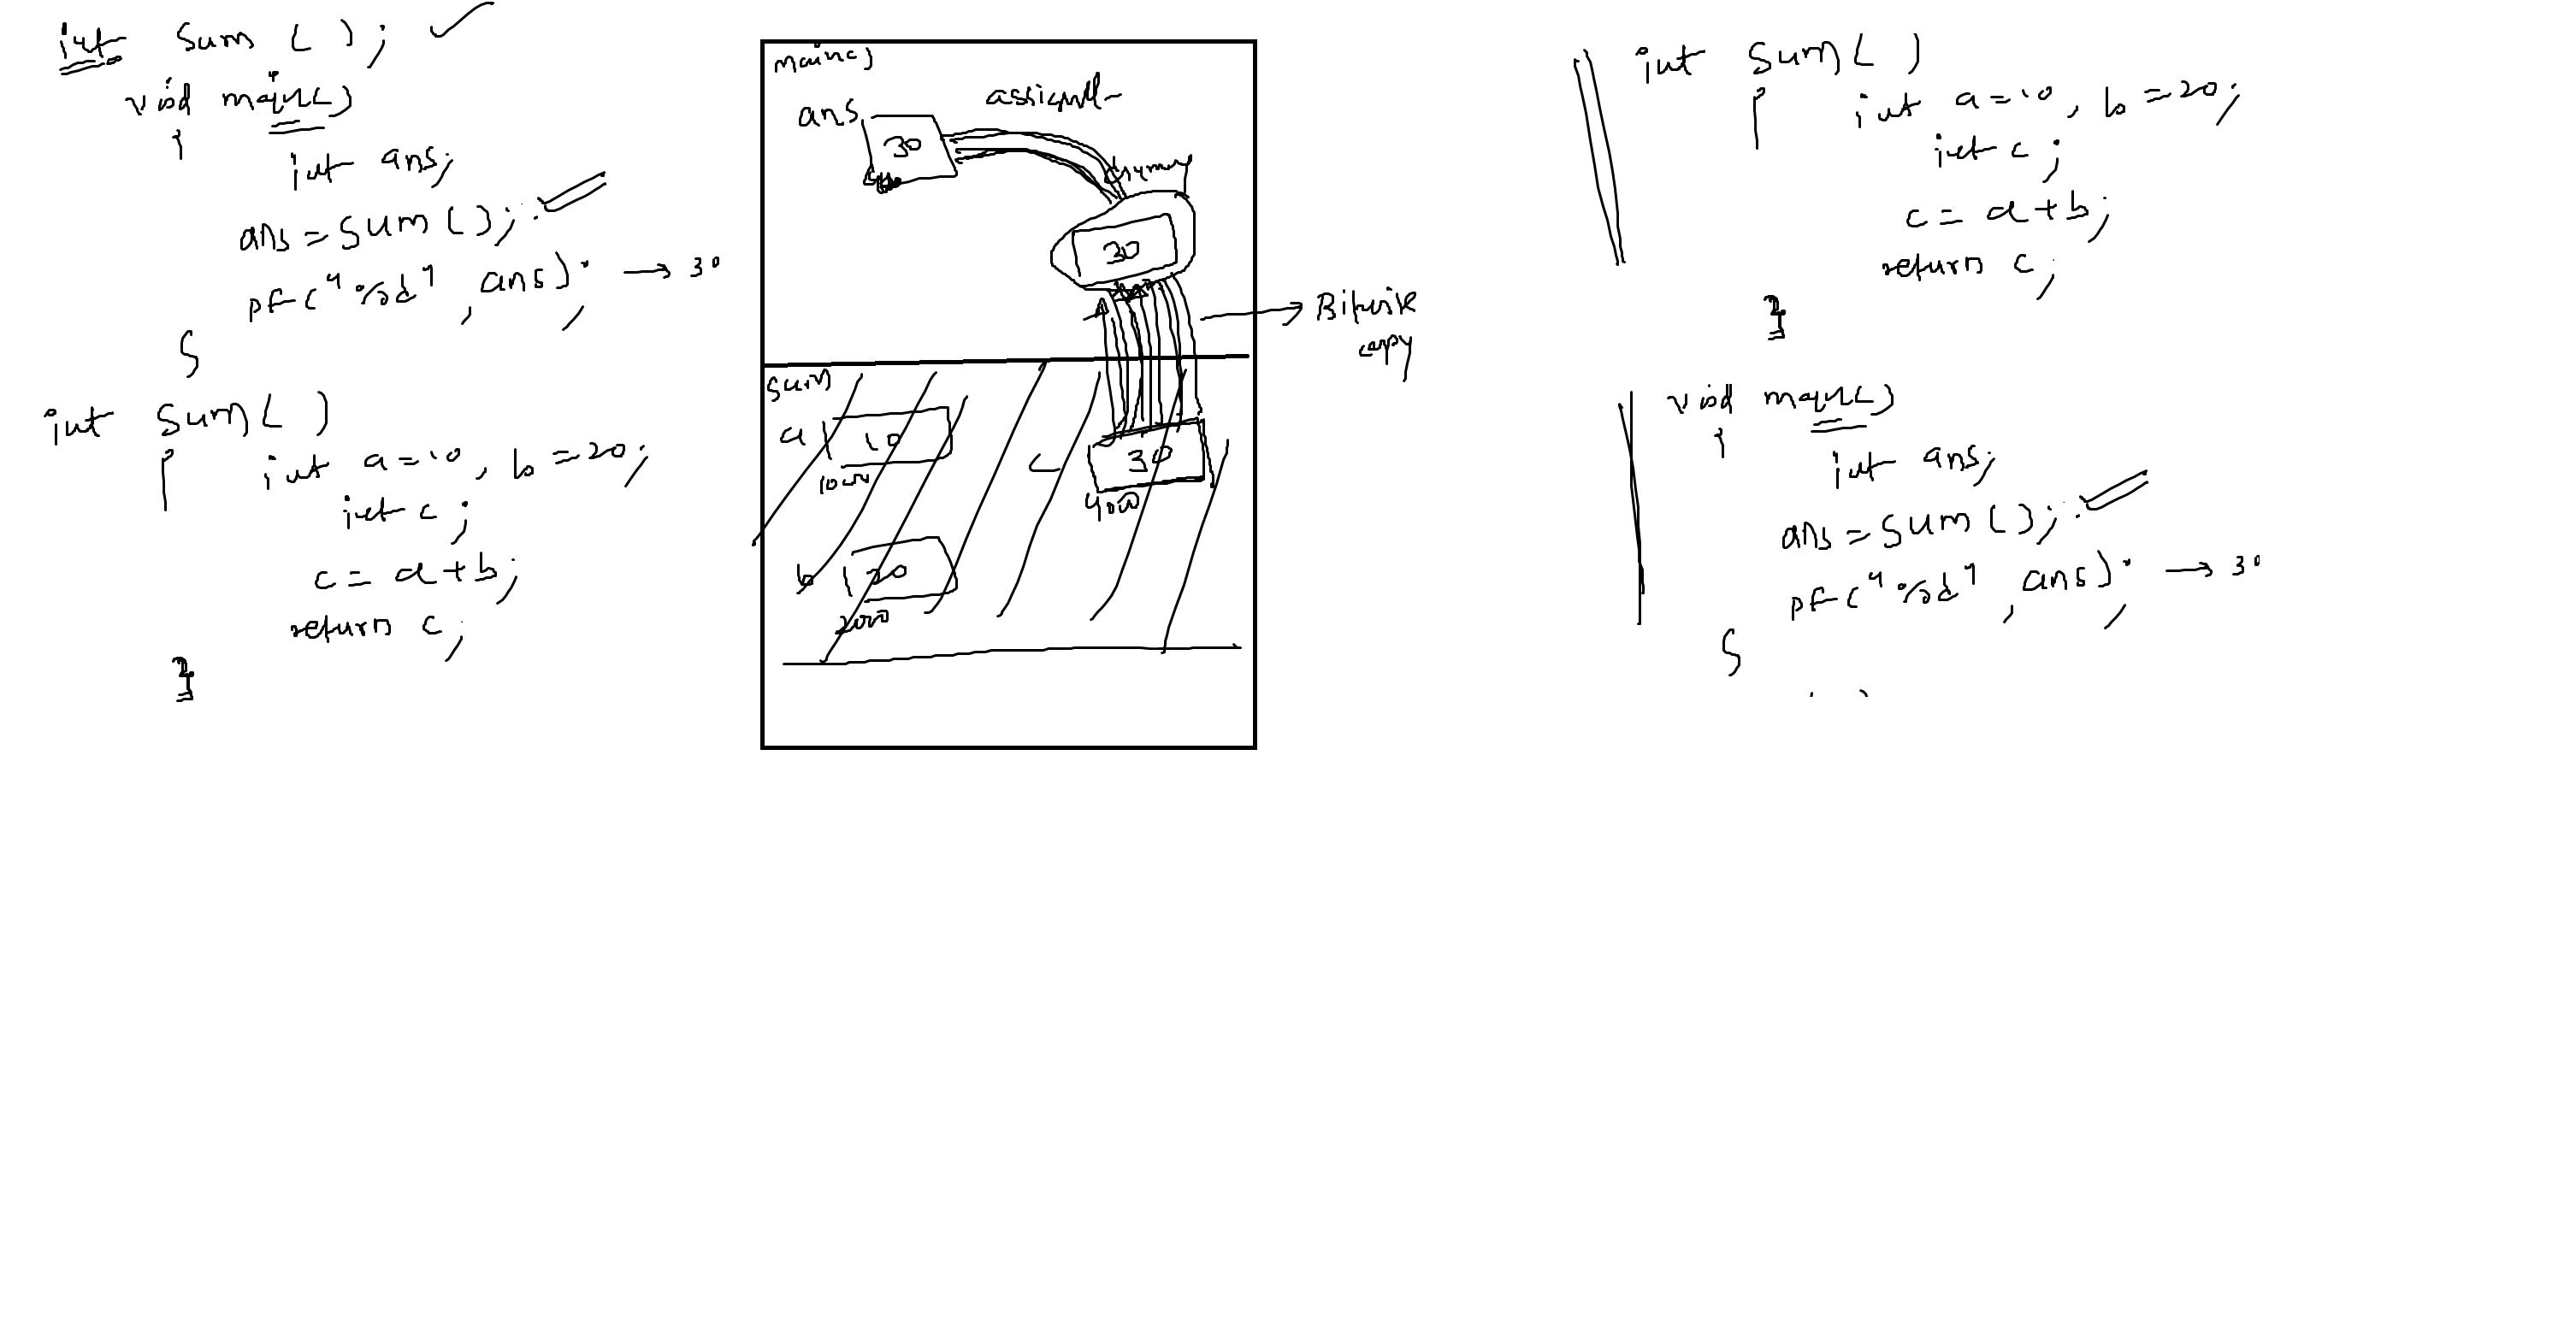 int sum ( );
void main()
{
int ans;
ans = sum ( );
pf("%d", ans); → 30
}
int sum ( )
{ int a=10, b=20;
int c;
c = a+b;
return c;
}
main()
ans
30
assignment
dummy
30
Bitwise
copy
sum
a 10
1000
c 30
4000
b 20
2000
int sum ( )
{ int a=10, b=20;
int c;
c = a+b;
return c;
}
void main()
{
int ans;
ans = sum ( );
pf("%d", ans); → 30
}